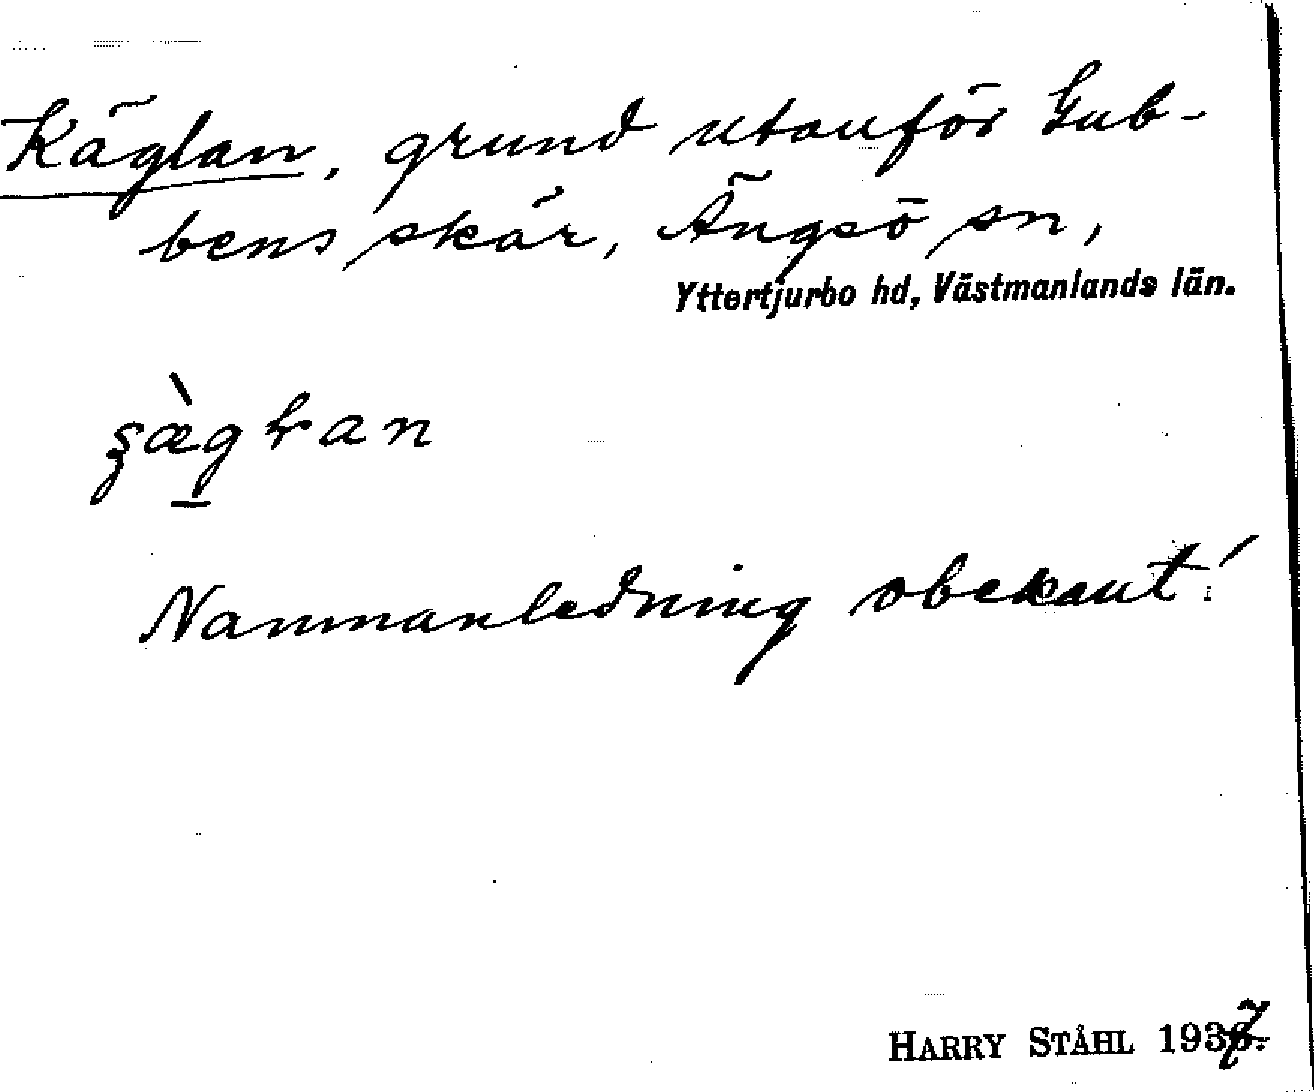 Käglan, grund utanför Gub-
bens skär, Ängsö sn,
Yttertjurbo hd, Västmanlands län.
Namnanledning obekant!
HARRY STÅHL 1937